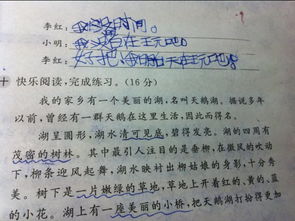 李红：我没时间。
小明：
李红：好吧
十 快乐阅读，完成练习。（16 分）
我的家乡有一个美丽的湖，名叫天鹅湖。据说多年
以前，曾经有一群天鹅在这里生活，因此而得名。
湖呈圆形，湖水清可见底，碧得发亮。湖的四周有
茂密的树林。其中最引人注目的是垂柳，在微风的吹动
下，柳条迎风起舞，湖水映衬出柳姑娘的身影，十分秀
美。树下是一片嫩绿的草地，草地上开着红的、黄的、蓝
的小花。湖上有一座美丽的小桥，把天鹅湖打扮得更加